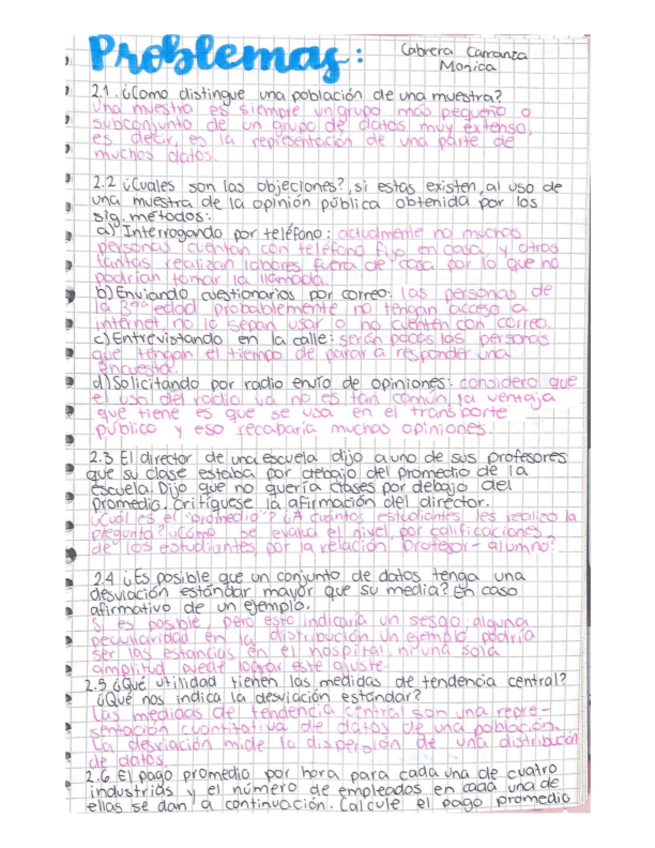 Problemas:
Cabrera Carranza
Monica
2.1. ¿Como distingue una población de una muestra?
Una muestra es siempre un grupo más pequeño o
subconjunto de un grupo de datos muy extenso,
es decir, es la representación de una parte de
muchos datos.
2.2 ¿Cuales son las objeciones?, si estas existen, al uso de
una muestra de la opinión pública obtenida por los
sig. métodos:
a) Interrogando por teléfono: actualmente no muchas
personas cuentan con teléfono fijo en casa y otras
tantas realizan labores fuera de casa por lo que no
podrian tomar la llamada.
b) Enviando cuestionarios por correo: las personas de
la 3era edad probablemente no tengan acceso a
internet, no lo sepan usar o no cuenten con correo.
c) Entrevistando en la calle: serán pocas las personas
que tengan el tiempo de parar a responder una
encuesta.
d) Solicitando por radio envío de opiniones: considero que
el uso del radio ya no es tan común, la ventaja
que tiene es que se usa en el transporte
público y eso recabaría muchas opiniones.
2.3 El director de una escuela dijo a uno de sus profesores
que su clase estaba por debajo del promedio de la
escuela. Dijo que no quería clases por debajo del
promedio. Critíquese la afirmación del director.
¿Cuál es el "promedio"? ¿A cuántos estudiantes les realizo la
pregunta? ¿Cómo se evalúa el nivel, por calificaciones
de los estudiantes, por la relación profesor-alumno?
2.4 ¿Es posible que un conjunto de datos tenga una
desviación estándar mayor que su media? En caso
afirmativo de un ejemplo.
Si es posible, pero esto indicaría un sesgo, alguna
peculiaridad en la distribución. Un ejemplo podría
ser las estancias en el hospital, ni una sola
amplitud puede lograr este ajuste.
2.5 ¿Qué utilidad tienen las medidas de tendencia central?
¿Qué nos indica la desviación estándar?
Las medidas de tendencia central son una repre-
sentación cuantitativa de datos de una población.
La desviación mide la dispersión de una distribución
de datos.
2.6 El pago promedio por hora para cada una de cuatro
industrias y el número de empleados en cada una de
ellas se dan a continuación. Calcule el pago promedio